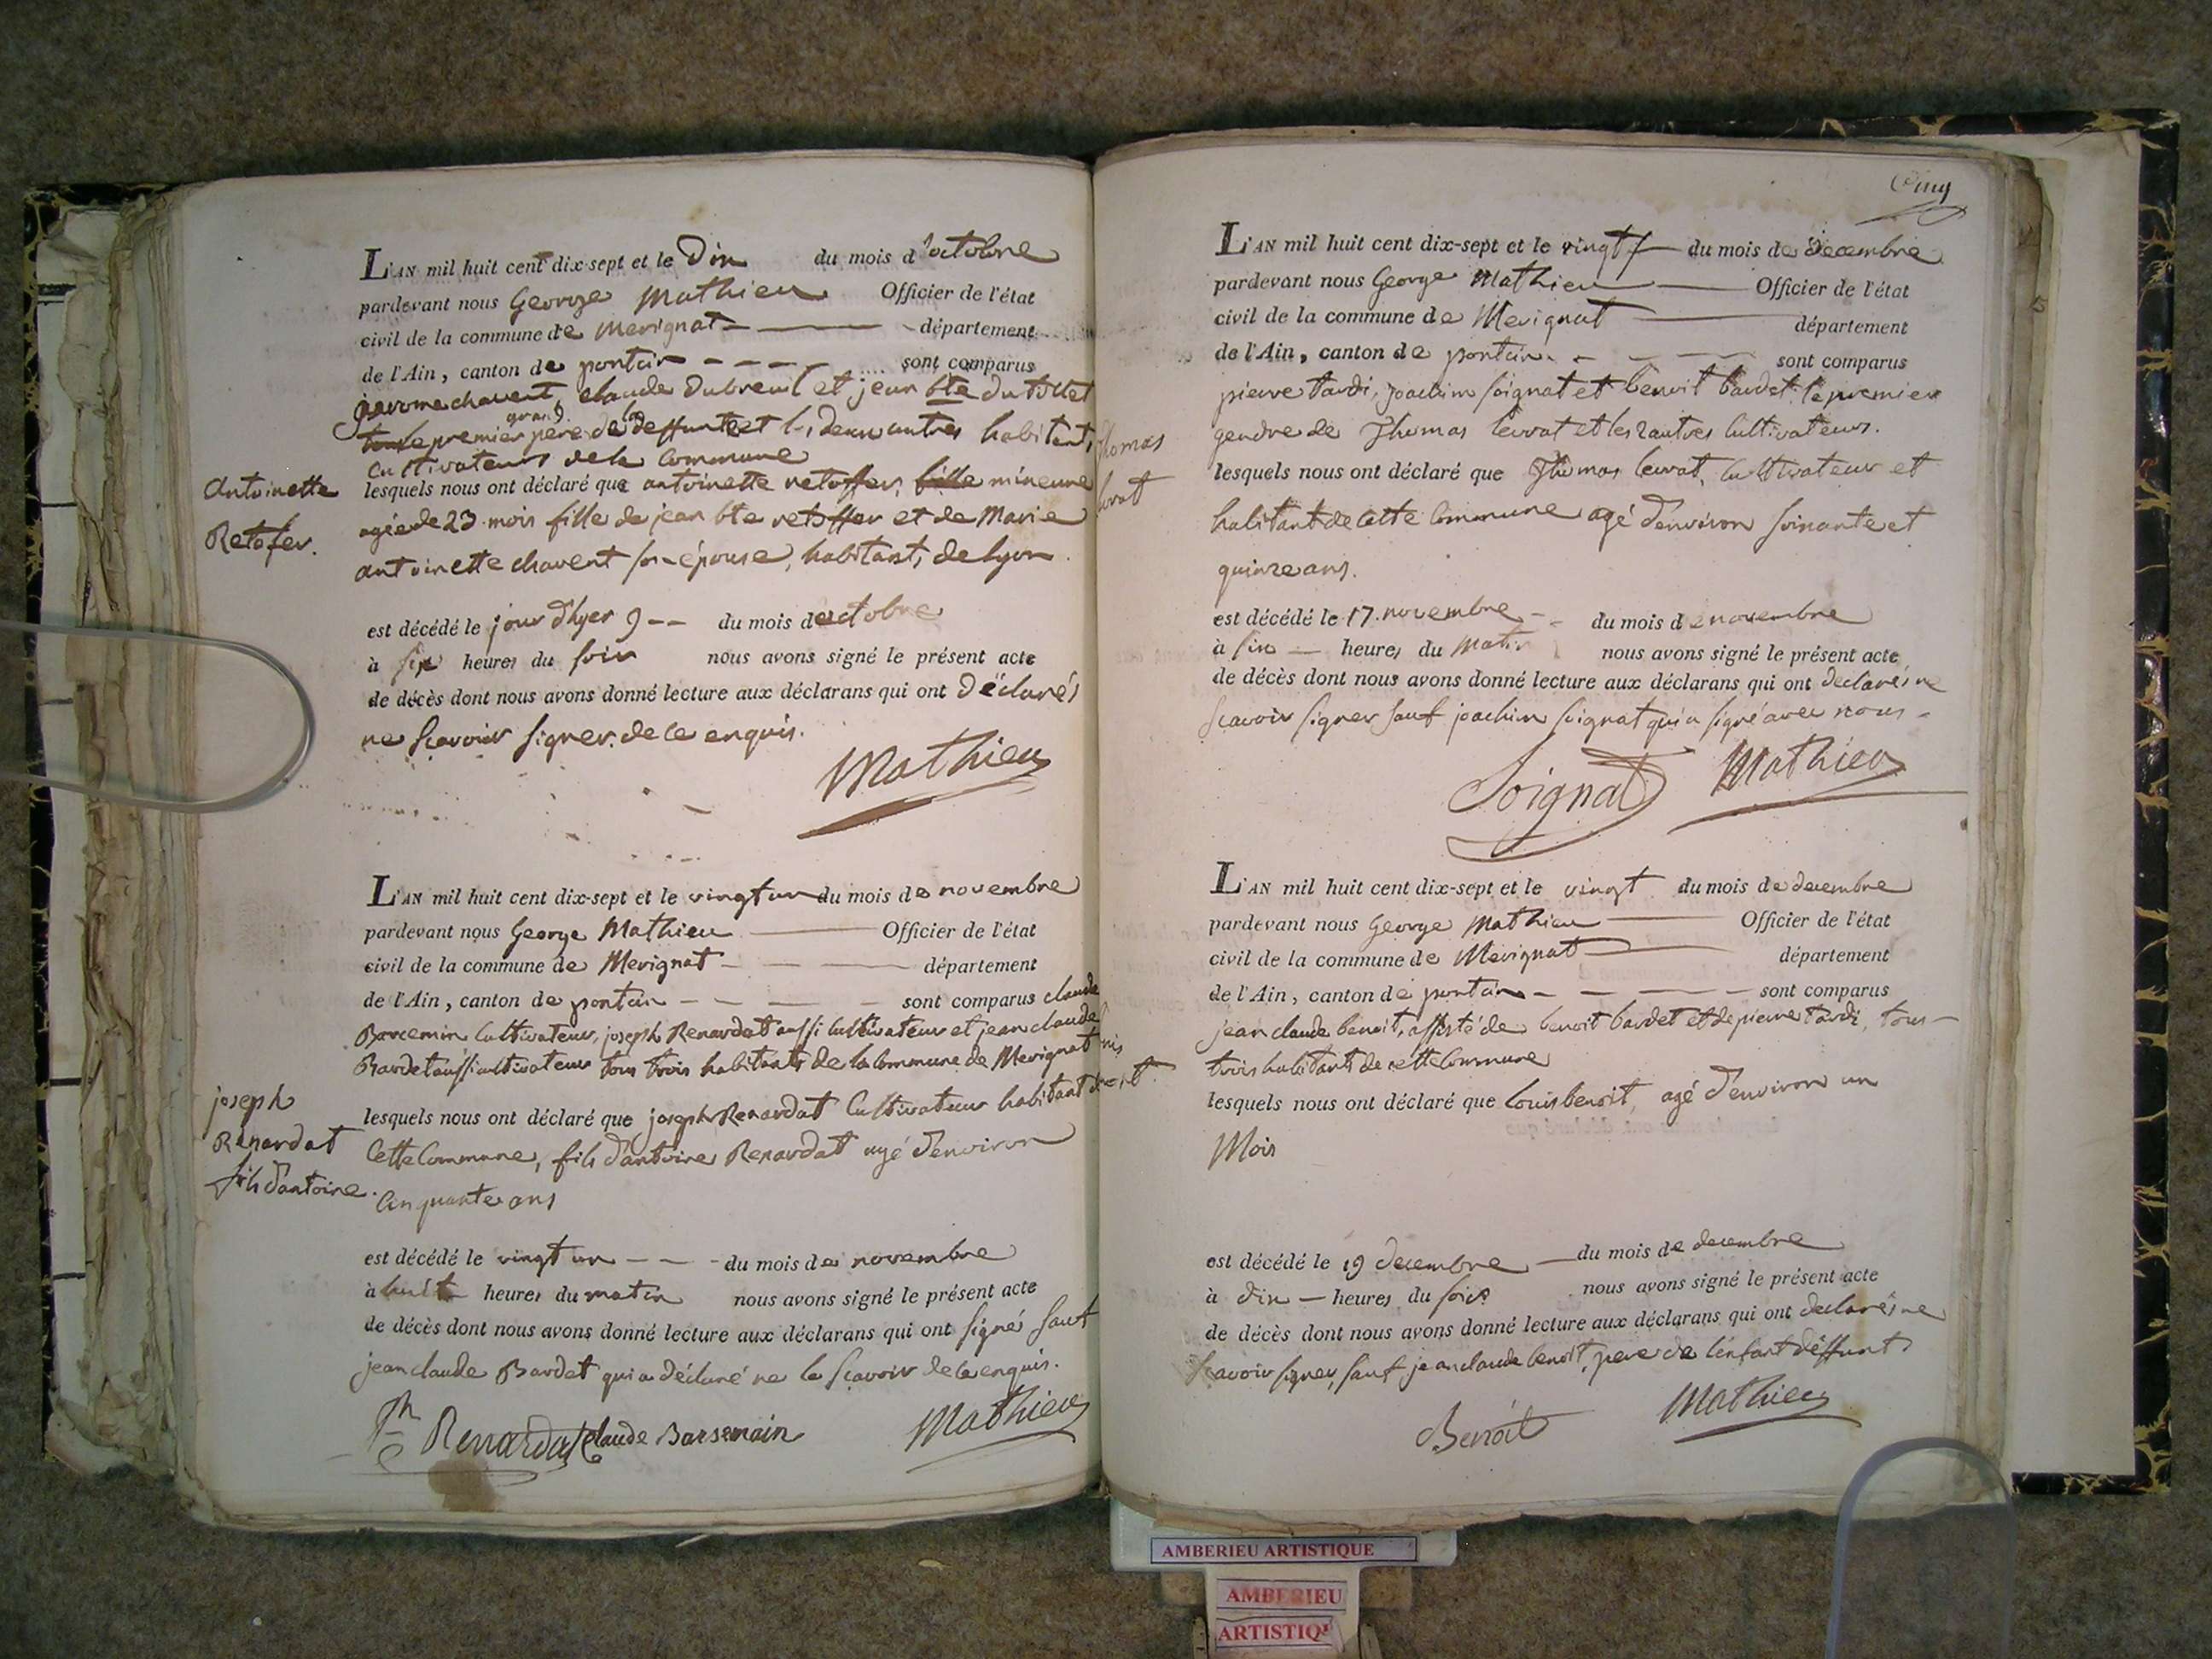 L'AN mil huit cent dix-sept et le Dix du mois d'octobre
pardevant nous George Mathieu Officier de l'état
civil de la commune de Merignat département
de l'Ain, canton de poncin sont comparus
jerome chavent, claude Dubreuil et jean bte dutillet
le premier grand pere de la deffunte et les deux autres habitants
cultivateurs de la commune
Antoinette
Retofer.
lesquels nous ont déclaré que antoinette retoffer, fille mineure
agée de 23 mois fille de jean bte retoffer et de Marie
antoinette chavent son épouse, habitants de lyon
est décédé le jour d'hyer 9 du mois d'octobre
à six heures du soir nous avons signé le présent acte
de décès dont nous avons donné lecture aux déclarans qui ont déclarés
ne scavoir signer. de ce enquis.
Mathieu
L'AN mil huit cent dix-sept et le vingt un du mois de novembre
pardevant nous George Mathieu Officier de l'état
civil de la commune de Merignat département
de l'Ain, canton de poncin sont comparus claude
Barcemin cultivateur, joseph Renardat aussi cultivateur et jean claude
Bardet aussi cultivateur tous trois habitants de la commune de Merignat
joseph
Renardat
fils d'antoine.
lesquels nous ont déclaré que joseph Renardat cultivateur habitant de
cette commune, fils d'antoine Renardat agé d'environ
cinquante ans
est décédé le vingt un du mois de novembre
à huit heures du matin nous avons signé le présent acte
de décès dont nous avons donné lecture aux déclarans qui ont signés sauf
jean claude Bardet qui a déclaré ne le scavoir de ce enquis.
Jh Renardat claude Barsemain Mathieu
Cinq
L'AN mil huit cent dix-sept et le vingt du mois de decembre
pardevant nous George Mathieu Officier de l'état
civil de la commune de Merignat département
de l'Ain, canton de poncin sont comparus
pierre tardi, joachim soignat et benoit bardet le premier
gendre de Thomas levrat et les 2 autres cultivateurs.
Thomas
levrat
lesquels nous ont déclaré que Thomas levrat, cultivateur et
habitant de cette commune agé d'environ soixante et
quinze ans.
est décédé le 17 novembre du mois de novembre
à six heures du matin nous avons signé le présent acte
de décès dont nous avons donné lecture aux déclarans qui ont declarés ne
scavoir signer sauf joachim soignat qui a signé avec nous
Soignat Mathieu
L'AN mil huit cent dix-sept et le vingt du mois de decembre
pardevant nous George Mathieu Officier de l'état
civil de la commune de Merignat département
de l'Ain, canton de poncin sont comparus
jean claude benoit, assisté de benoit bardet et de pierre tardi, tous
trois habitants de cette commune
lesquels nous ont déclaré que louis benoit, agé d'environ un
Mois
est décédé le 19 decembre du mois de decembre
à dix heures du soir nous avons signé le présent acte
de décès dont nous avons donné lecture aux déclarans qui ont declarés ne
scavoir signer, sauf jean claude benoit, pere de l'enfant déffunt
Benoit Mathieu
AMBERIEU ARTISTIQUE
AMBERIEU
ARTISTIQ